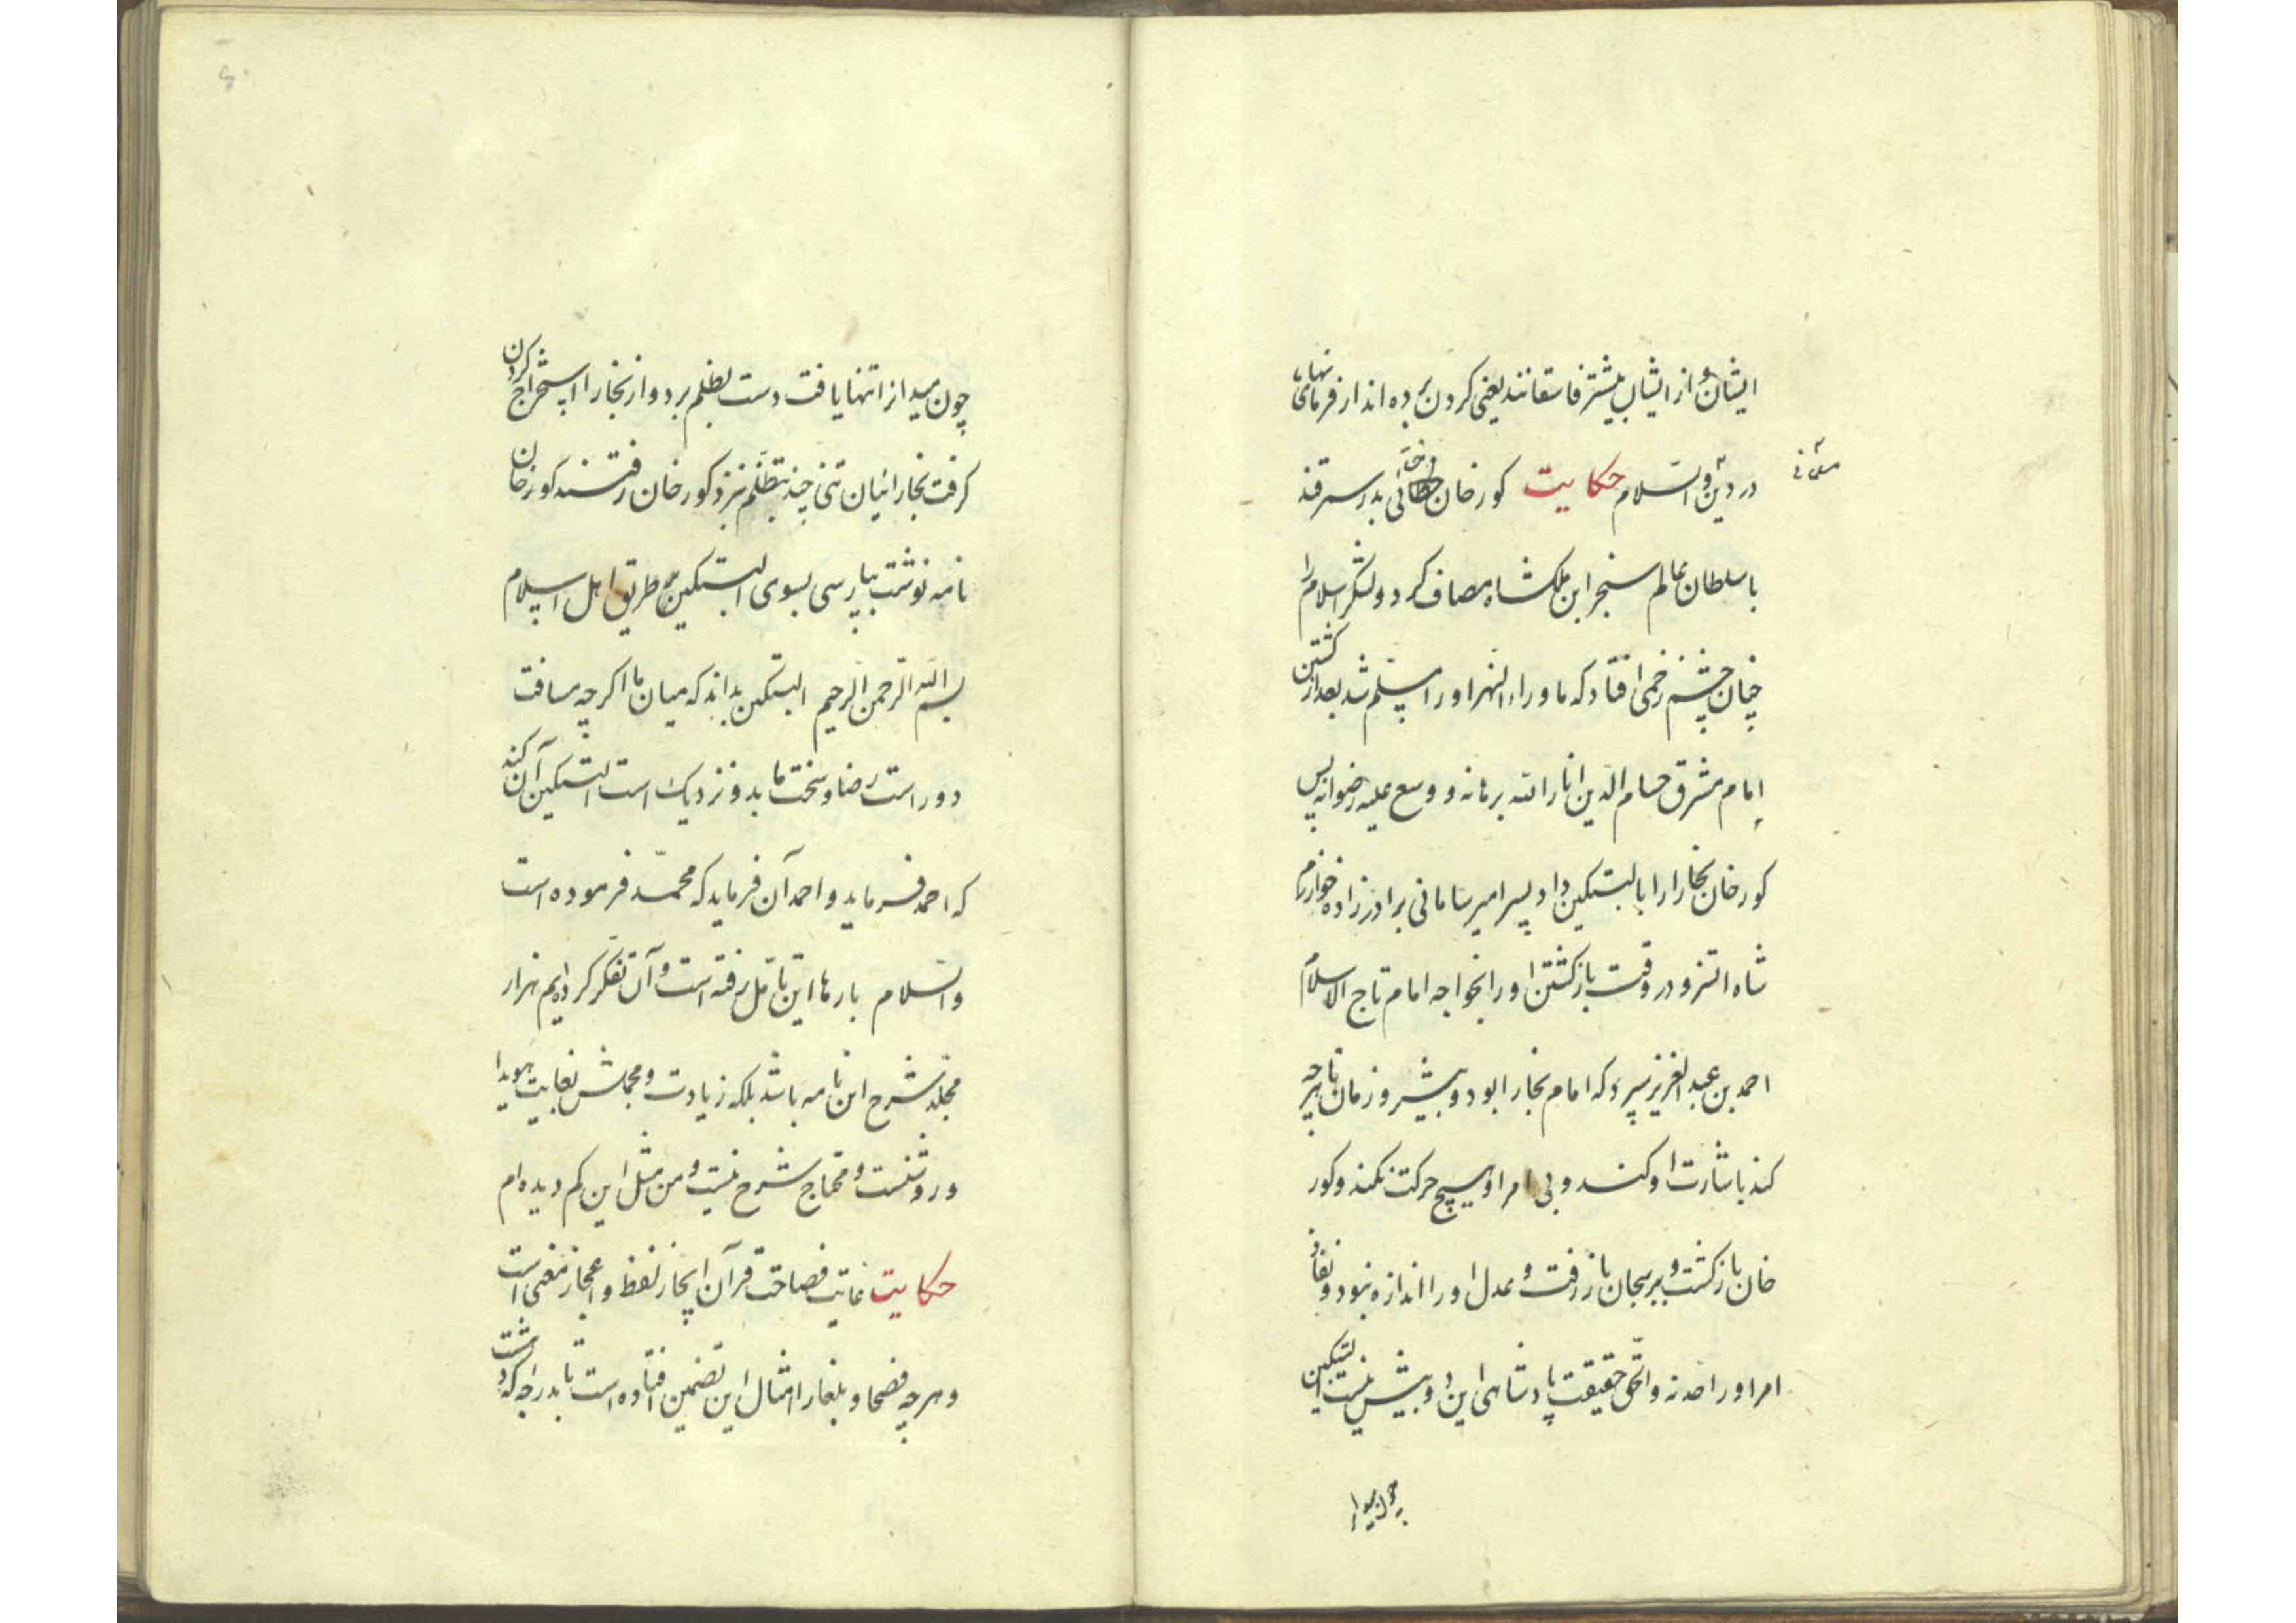 ایشان و از ایشان بیشتر فاسقانند یعنی کردن برده اند از فرمای نهاء
در دین و السّلام حکایت کور خان خطائی بدر سمرقند
با سلطان عالم سنجر ابن ملکشاه مصاف کرد و لشکر اسلام را
چنان چشم زخمی افتاد که ماوراء النهر او را مسلّم شد بعد از کشتن
امام مشرق حسام الدین انار الله برهانه و وسع علیه رضوانه پس
کور خان بخارا را بالبتکین داد پسر امیر سامانی برادر زاده خوارزم
شاه اتسز و در وقت بازکشتن او را بخواجه امام تاج الاسلام
احمد بن عبد العزیز سپرد که امام بخارا بود و پیشرو زمان تا هر چه
کند باشارت او کند و بی امر او هیچ حرکت نکند و کور
خان بازکشت و ببرسجان باز رفت و عدل او را اندازه نبود و نفاذ
امر او را حد نه و الحق حقیقت پادشاهی این دو بیش نیست البتکین
چون میدان
چون میدان تنها یافت دست بظلم برد و از بخارا استخراج کردن
کرفت بخارائیان تنی چند بتظلم نزد کور خان رفتند کور خان
نامه نوشت بپارسی بسوی البتکین بر طریق اهل اسلام
بسم الله الرّحمن الرّحیم البتکین بداند که میان ما اکر چه مسافت
دور است رضا و سخت ما بدو نزدیک است البتکین آن کند
که احمد فرماید و احمد آن فرماید که محمّد فرموده است
والسّلام بارها این تامّل رفته است و آن تفکّر کرده ایم هزار
مجلّد شرح این نامه باشد بلکه زیادت و مجملش بغایت هویدا
و روشنست و محتاج شرح نیست و من مثل این کم دیده ام
حکایت غایت فصاحت قرآن ایجاز لفظ و اعجاز معنی است
و هر چه فصحا و بلغا را امثال این تضمین افتاده است تا بدرجه که دهشت